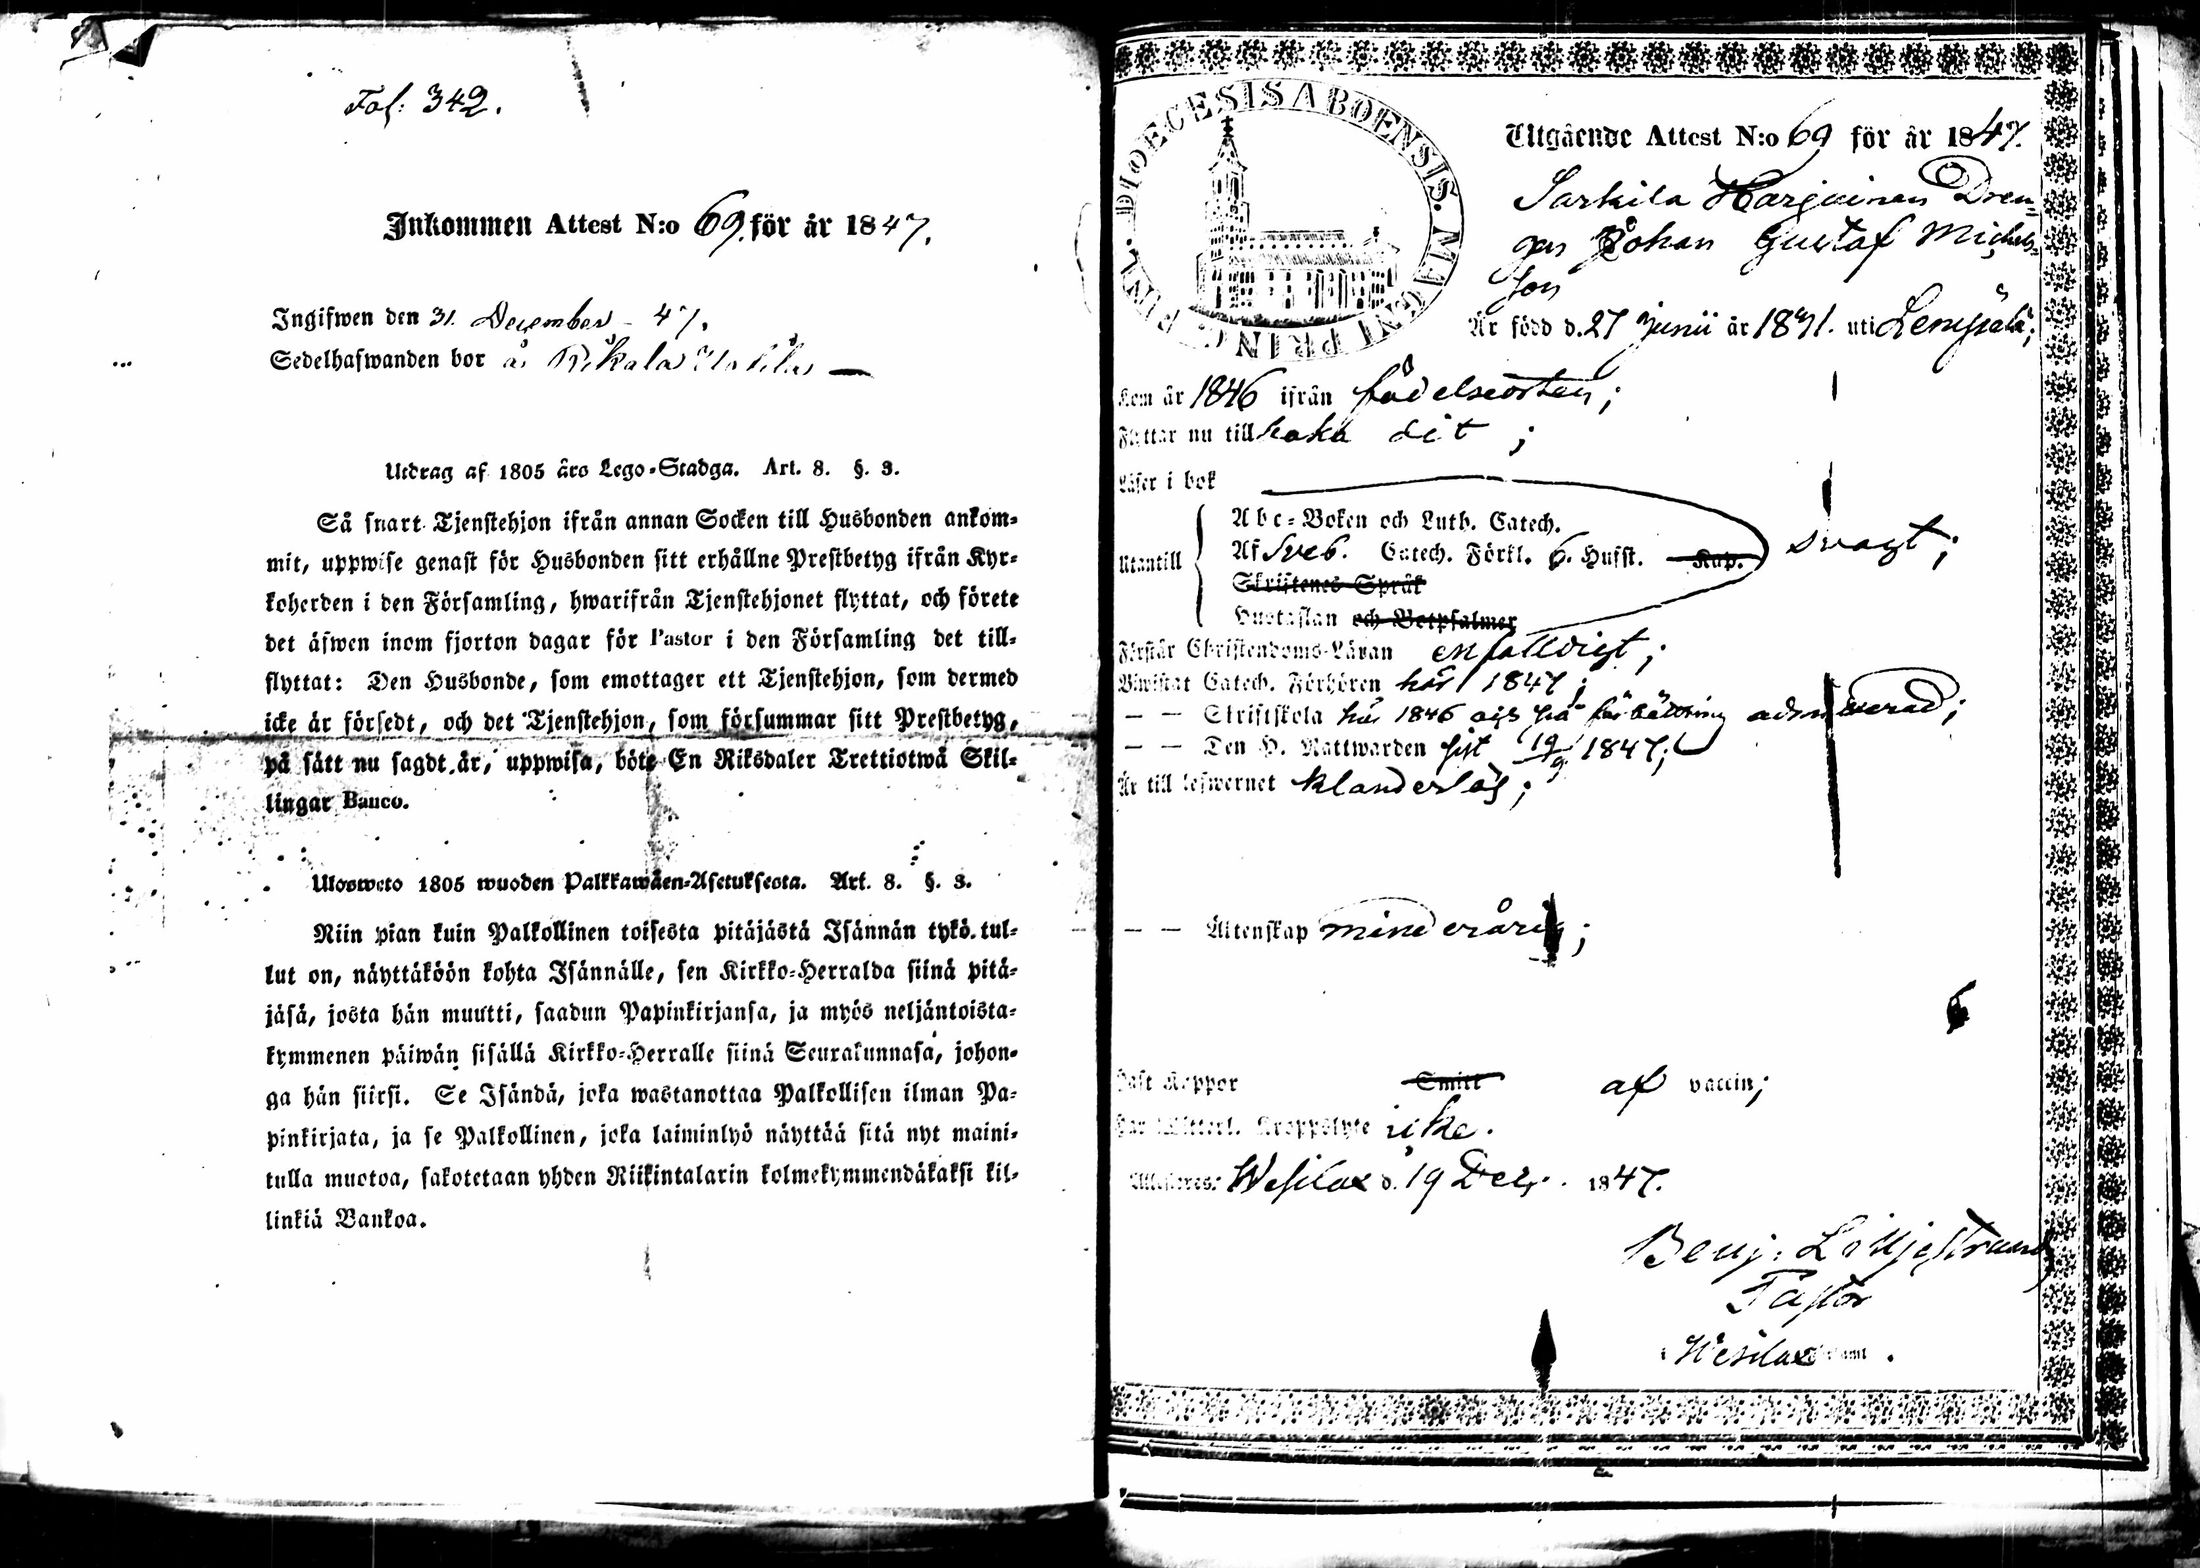 Fol: 342.
Inkommen Attest N:o 69. för år 1847.
Ingifwen den 31. December - 47.
Sedelhafwanden bor å
Utdrag af 1805 års Lego-Stadga. Art. 8. §. 3.
Så snart Tjenstehjon ifrån annan Socken till Husbonden ankom-
mit, uppwise genast för Husbonden sitt erhållne Prestbetyg ifrån Kyr-
koherden i den Församling, hwarifrån Tjenstehjonet flyttat, och förete
det äfwen inom fjorton dagar för Pastor i den Församling det till-
flyttat: Den Husbonde, som emottager ett Tjenstehjon, som dermed
icke är försedt, och det Tjenstehjon, som försummar sitt Prestbetyg,
på sätt nu sagdt är, uppwisa, böte En Riksdaler Trettiotwå Skil-
lingar Banco.
Ulosweto 1805 wuoden Palkkawäen-Asetuksesta. Art. 8. §. 3.
Niin pian kuin Palkollinen toisesta pitäjästä Isännän tykö tul-
lut on, näyttäköön kohta Isännälle, sen Kirkko-Herralda siinä pitä-
jäsä, josta hän muutti, saadun Papinkirjansa, ja myös neljäntoista-
kymmenen päiwän sisällä Kirkko-Herralle siinä Seurakunnasa, johon-
ga hän siirsi. Se Isändä, joka wastanottaa Palkollisen ilman Pa-
pinkirjata, ja se Palkollinen, joka laiminlyö näyttää sitä nyt maini-
tulla muotoa, sakotetaan yhden Riikintalarin kolmekymmendäkaksi kil-
linkiä Bankoa.
DIOECESIS ABOENSIS. MAGNI PRINC. FINL.
Utgående Attest N:o 69 för år 1847.
Sarkila Harjuinen Dren-
gen Johan Gustaf Michels-
son
Är född d. 27 Junii år 1831. uti Lempälä;
Kom år 1846 ifrån födelseorten;
Flyttar nu tillbaka dit;
Läser i bok
Utantill
Abc-Boken och Luth. Catech.
Af Sveb. Catech. Förkl. 6. Hufst. Kap. svagt;
Skriftenes Språk
Hustaflan och Botpsalmer
Förstår Christendoms-Läran enfalldigt;
Biwistat Catech. Förhören här 1847;
— — Skriftskola här 1846 och på förbättring admitterad;
— — Den H. Nattwarden sist 19/9 1847;
Är till lefwernet klanderlös;
— — Äktenskap minderårig;
Haft Koppor Smitt af vaccin;
Har Witterl. Kroppslyte icke.
Attesteres: Wesilax d. 19 Dec. 1847.
Benj. Lilljestrand
Pastor
i Wesilax